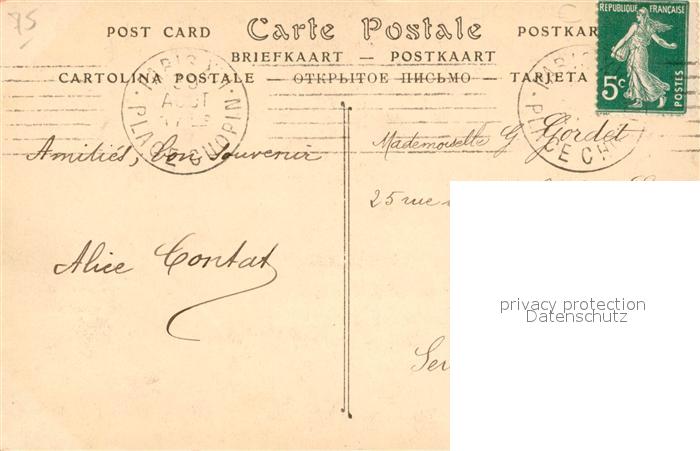 75
POST CARD Carte Postale POSTKAR
BRIEFKAART — POSTKAART
CARTOLINA POSTALE — ОТКРЫТОЕ ПИСЬМО — TARJETA
REPUBLIQUE FRANÇAISE
5c
POSTES
PARIS XVI
AOUT
PLACE CHOPIN
PARIS
PLACE CH
Amitiés, bon souvenir
Alice Contat
Mademoiselle G Gordet
25 rue
Ser
privacy protection
Datenschutz